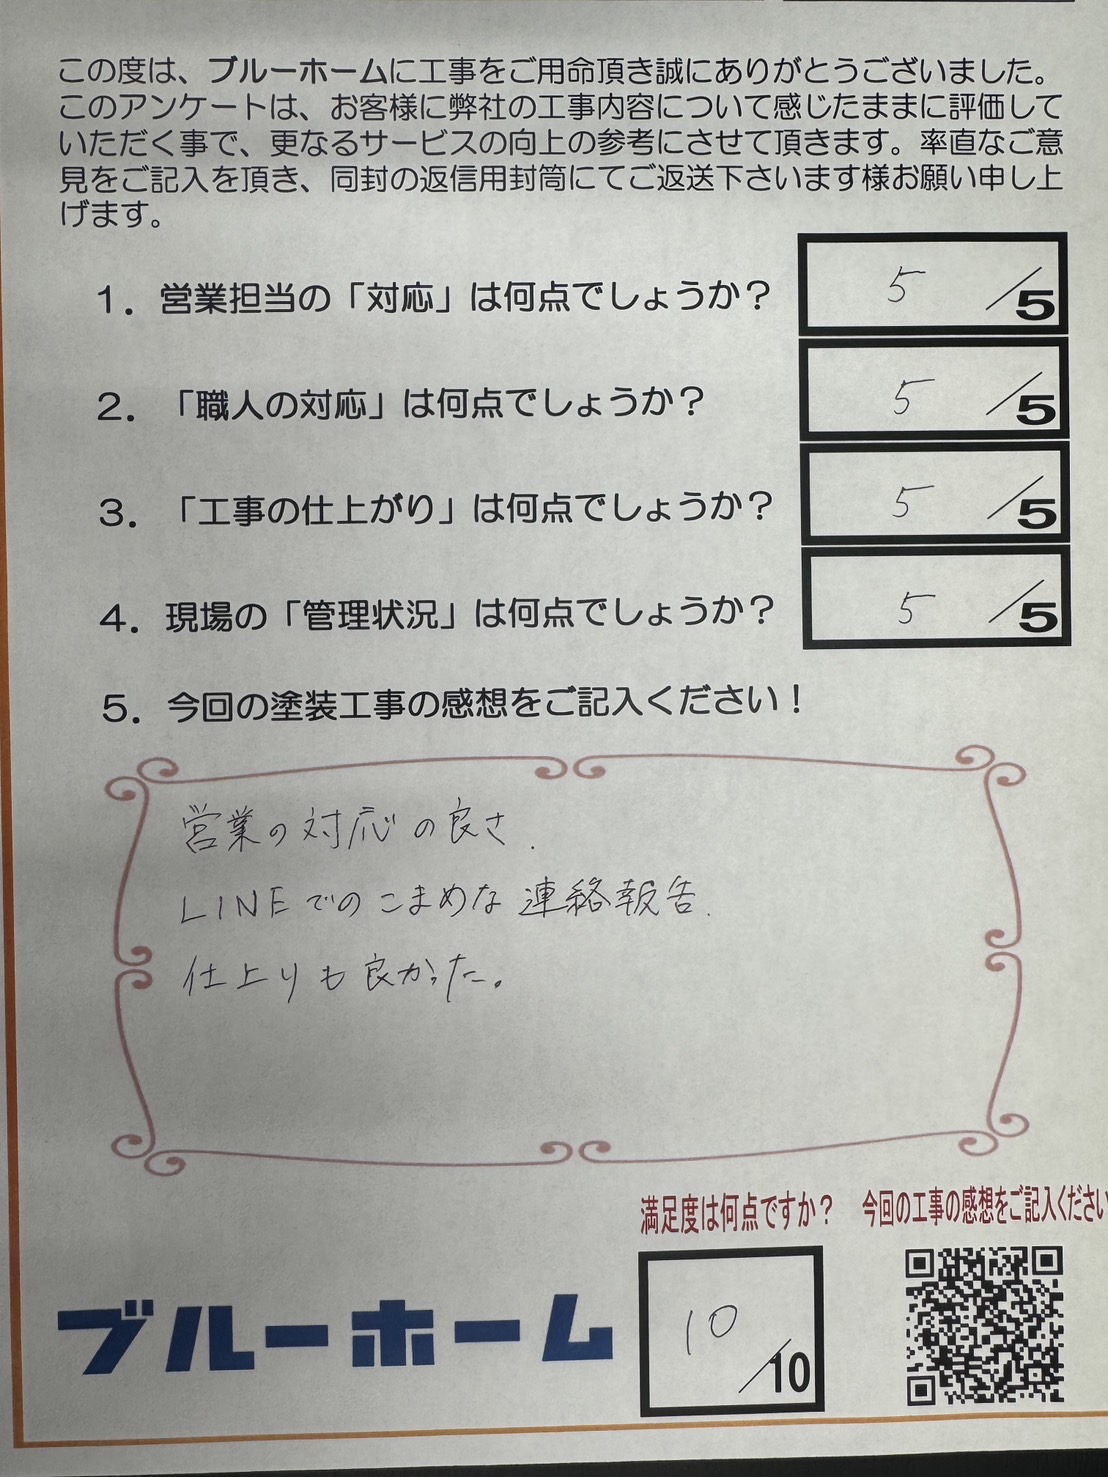 この度は、ブルーホームに工事をご用命頂き誠にありがとうございました。
このアンケートは、お客様に弊社の工事内容について感じたままに評価して
いただく事で、更なるサービスの向上の参考にさせて頂きます。率直なご意
見をご記入を頂き、同封の返信用封筒にてご返送下さいます様お願い申し上
げます。
1．営業担当の「対応」は何点でしょうか？ 5／5
2．「職人の対応」は何点でしょうか？ 5／5
3．「工事の仕上がり」は何点でしょうか？ 5／5
4．現場の「管理状況」は何点でしょうか？ 5／5
5．今回の塗装工事の感想をご記入ください！
営業の対応の良さ.
LINEでのこまめな連絡報告.
仕上りも良かった。
満足度は何点ですか？ 今回の工事の感想をご記入ください
ブルーホーム 10／10